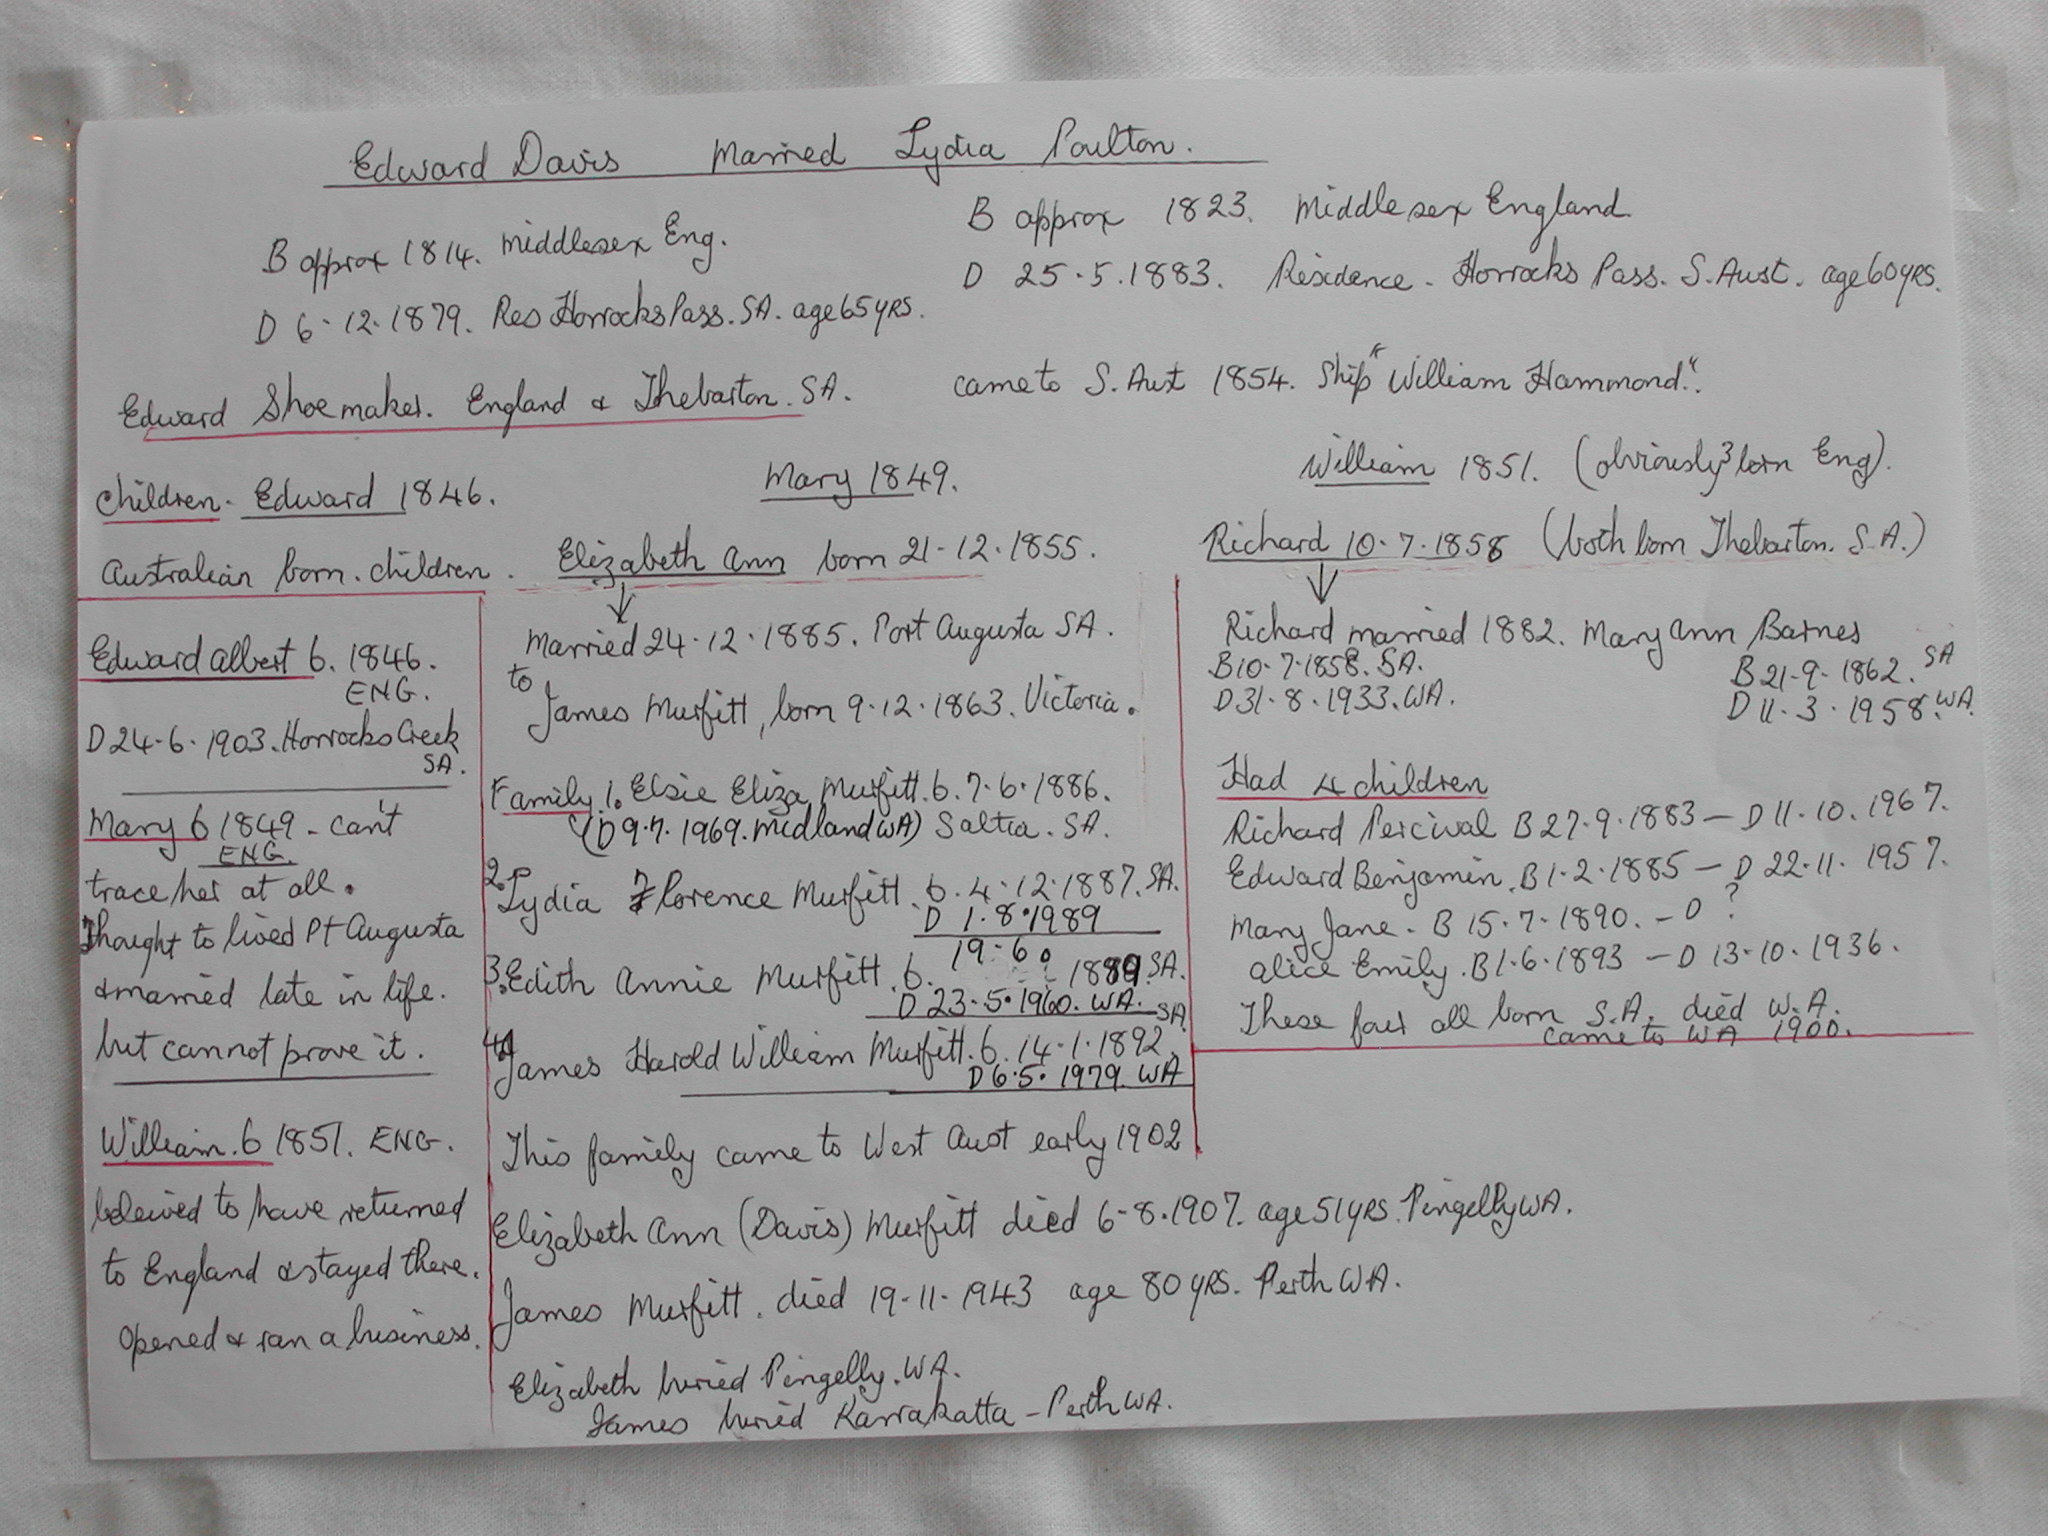 Edward Davis Married Lydia Poulton.
B approx 1814. Middlesex Eng.
D 6.12.1879. Res Horrocks Pass. SA. age 65 YRS.
B approx 1823. Middlesex England
D 25.5.1883. Residence - Horrocks Pass. S. Aust. age 60 YRS.
Edward Shoemaker. England & Thebarton. SA.
came to S. Aust 1854. Ship "William Hammond".
Children - Edward 1846. Mary 1849. William 1851. (obviously 3 born Eng).
Australian born. children. Elizabeth Ann born 21-12.1855. Richard 10.7.1858 (both born Thebarton. S.A.)
Edward Albert b. 1846.
ENG.
D 24-6.1903. Horrocks Creek
SA.
Mary b 1849 - can't
ENG.
trace her at all.
Thought to lived Pt Augusta
& married late in life.
but cannot prove it.
William. b 1851. ENG.
beleived to have returned
to England & stayed there.
Opened & ran a business.
Married 24.12.1885. Port Augusta SA.
to
James Murfitt, born 9.12.1863. Victoria.
Family 1. Elsie Eliza Murfitt. b. 7.6.1886.
(D 9.7.1969. Midland WA) Saltia. SA.
2. Lydia Florence Murfitt. b. 4.12.1887. SA.
D 1.8.1989
3. Edith Annie Murfitt. b. 19-6. 1889. SA.
D 23.5.1960. WA.
4. James Harold William Murfitt. b. 14.1.1892. SA
D 6.5.1979. WA
This family came to West Aust early 1902
Elizabeth Ann (Davis) Murfitt died 6-8.1907. age 51 YRS. Pingelly WA.
James Murfitt. died 19-11-1943 age 80 YRS. Perth WA.
Elizabeth buried Pingelly. WA.
James buried Karrakatta - Perth WA.
Richard married 1882. Mary Ann Barnes
B 10.7.1858. SA. B 21-9-1862. SA
D 31.8.1933. WA. D 11.3.1958. WA
Had 4 children
Richard Percival B 27.9.1883 - D 11.10.1967.
Edward Benjamin. B 1.2.1885 - D 22.11.1957.
Mary Jane. B 15.7.1890. - D ?
Alice Emily. B 1.6.1893 - D 13.10.1936.
These four all born S.A. died W.A.
came to WA 1900.